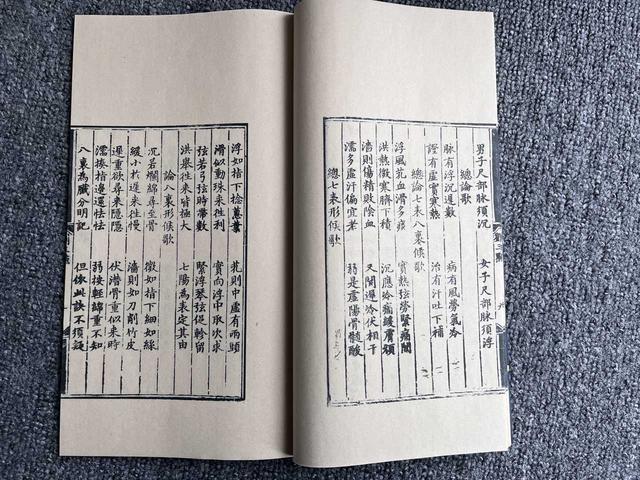 男子尺部脉須沉 女子尺部脉須浮
總論歌
脉有浮沉遲數 病有風勞氣冷
證有虛實寒熱 治有汗吐下補
總論七表八裏候歌
浮風芤血滑多痰 實熱弦勞緊痛間
洪熱微寒臍下積 沉應冷痛緩膚頑
濇則傷精敗陰血 又聞遲冷伏相干
濡多虛汗偏宜老 弱是虛陽骨髓酸
總七表形候歌
浮如指下捻葱葉 芤則中虛有兩頭
滑似動珠來往利 實向浮中取次求
弦若弓弦時帶數 緊浮琴弦促軫留
洪舉按來皆極大 七陽為表定其由
論八裏形候歌
沉若爛綿尋至骨 微如指下細如線
緩小於遲來往慢 濇則如刀刮竹皮
遲重欲尋來隱隱 伏潛骨重似來時
濡揍指邊還怯怯 弱按輕綿重不知
八裏為臟分明記 但依此訣不須疑